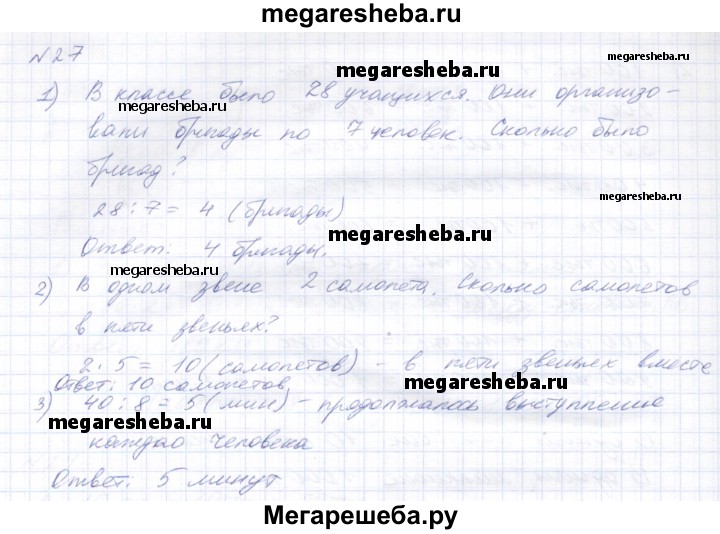 megaresheba.ru
№27
megaresheba.ru
megaresheba.ru
1) В классе было 28 учащихся. Они организо-
megaresheba.ru
вали бригады по 7 человек. Сколько было
бригад?
megaresheba.ru
28:7= 4 (бригады)
megaresheba.ru
Ответ: 4 бригады.
megaresheba.ru
2) В одном звене 2 самолета. Сколько самолетов
в пяти звеньях?
2·5=10(самолетов) - в пяти звеньях вместе
Ответ: 10 самолетов
megaresheba.ru
3) 40:8=5(мин)-продолжалось выступление
megaresheba.ru
каждао человека
Ответ: 5 минут
Мегарешеба.ру